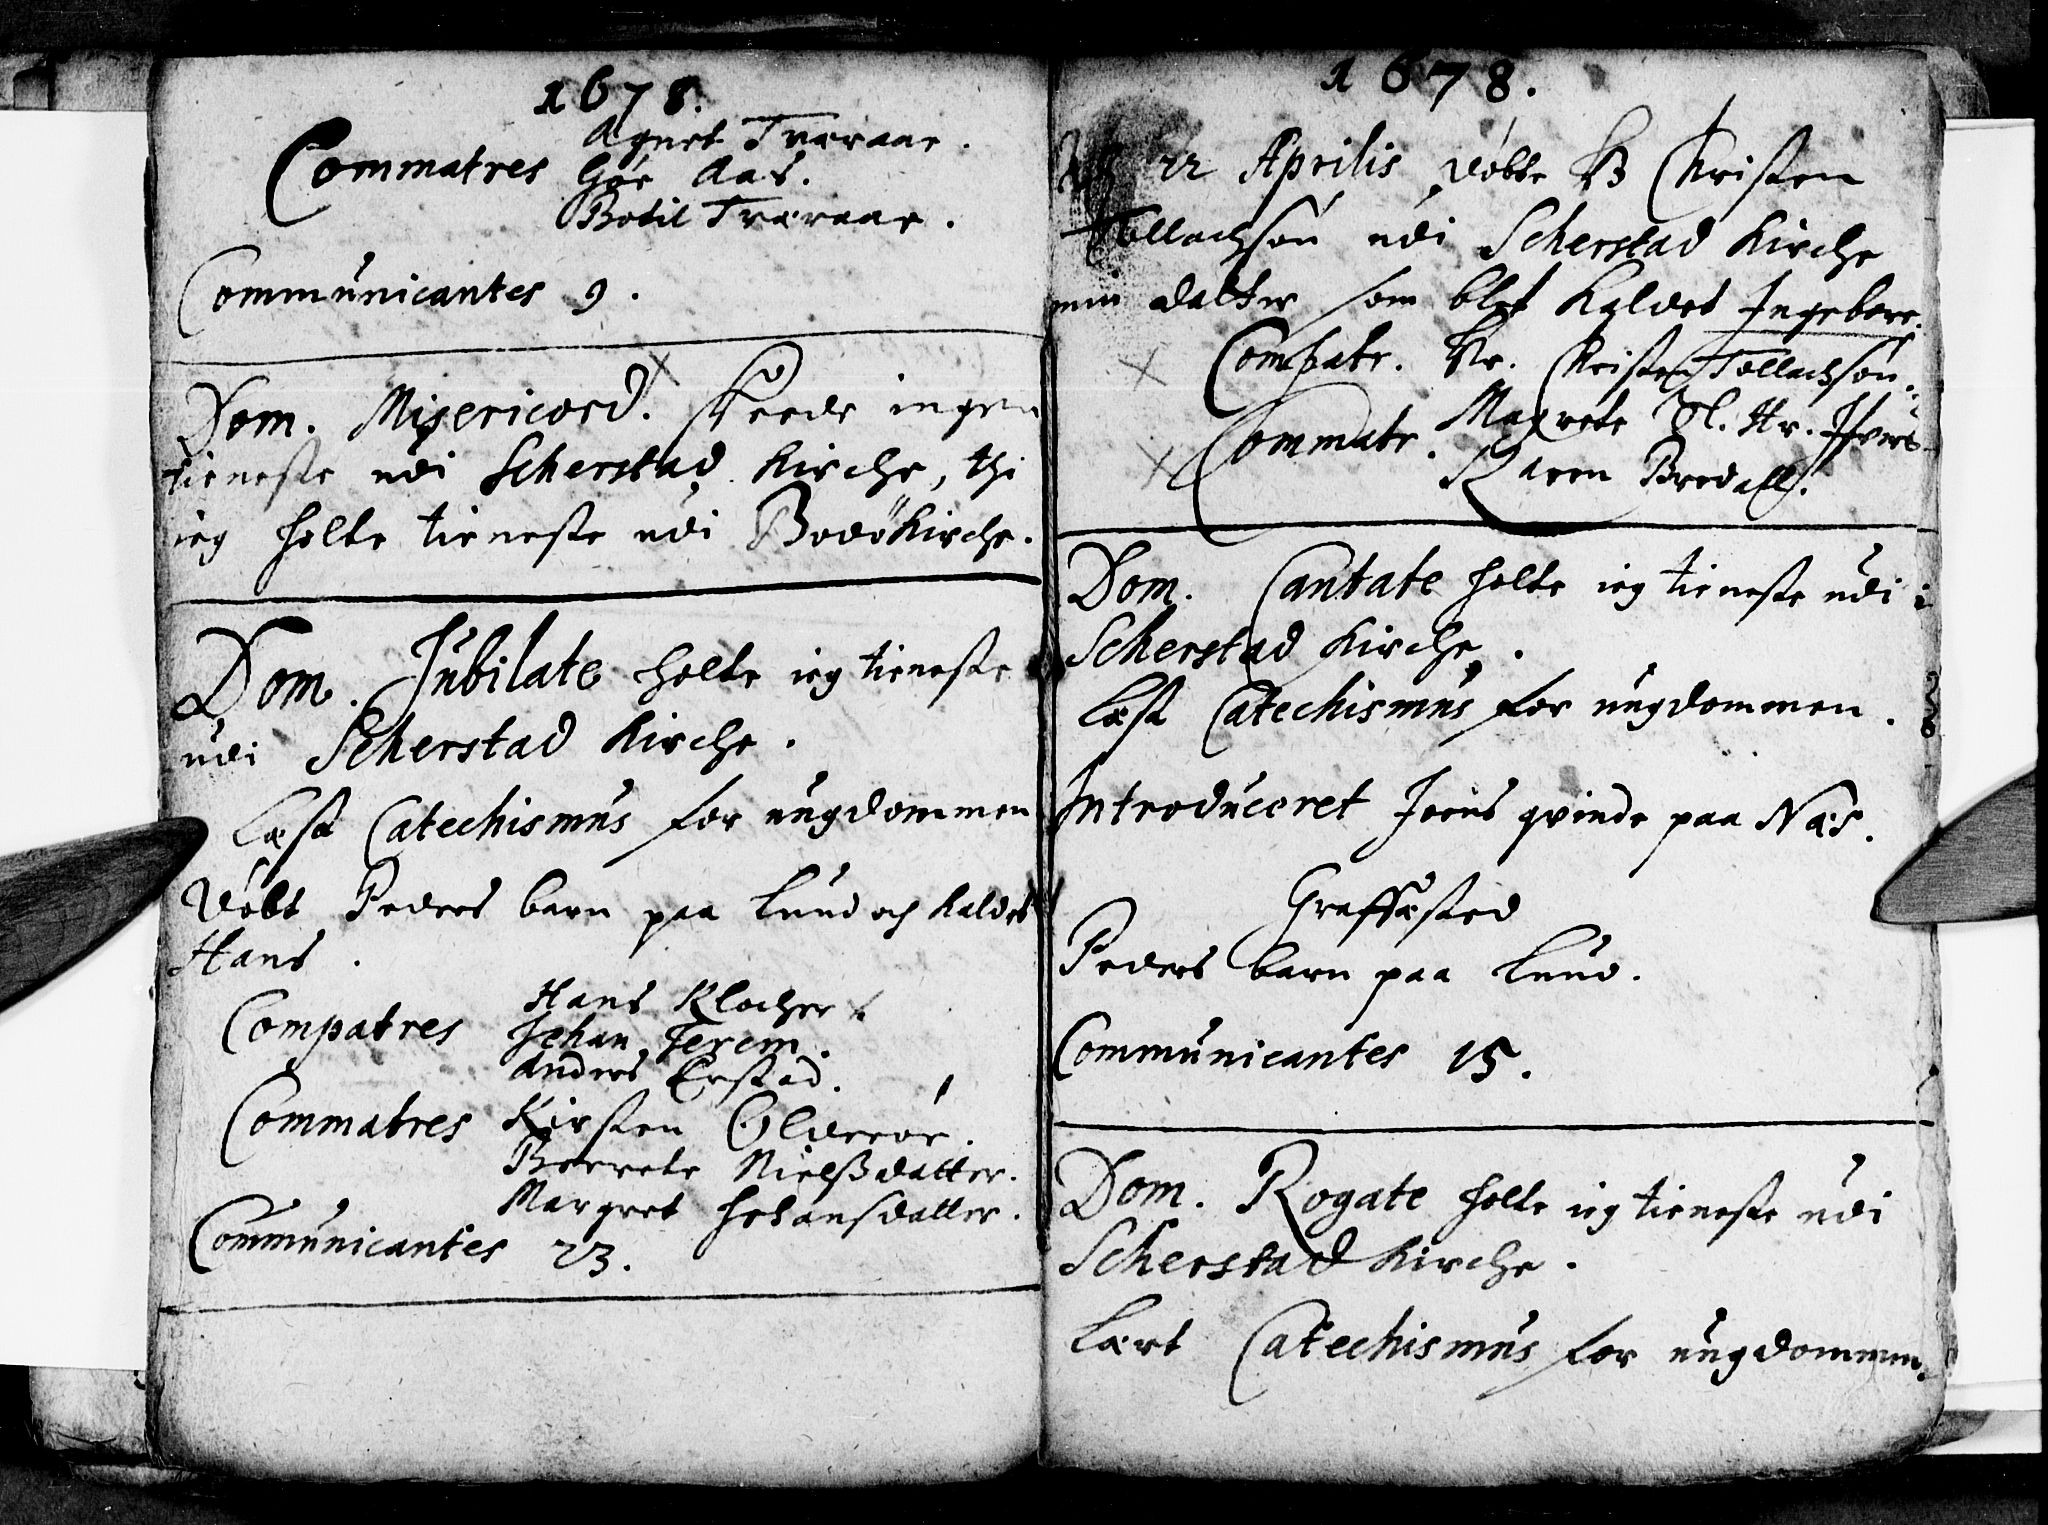 1678.
Agnet Tværaae.
Commatres Gøe Aas.
Bodil Tværaae.
Communicantes 9.
Dom. Misericord. skeede ingen
tieneste udi Scherstad Kirche, thi
ieg holte tieneste udi Bodökirche.
Dom. Jubilate holte ieg tieneste
udi Scherstad Kirche.
Læst Catechismus for ungdommen
Döbt Peders barn paa Lund och kaldet
Hans.
Hans Klocher
Compatres Johan Jerem.
Anders Erstad.
Commatres Kirsten Olderöe.
Beerete Nielßdatter.
Margret Johansdatter.
Communicantes 23.
1678.
22 Aprilis döbte Hr Christen
Tollachsön udi Scherstad Kirche
min datter som blef kaldet Ingeborg.
Compatr. Hr. Christen Tollachsön.
Commatr. Magrete Sl. Hr. Ifvers
Karen Bredall.
Dom. Cantate holte ieg tieneste udi
Scherstad Kirche.
Læst Catechismus for ungdommen.
Introduceret Joens qvinde paa Næs.
Graffæsted
Peders barn paa Lund.
Communicantes 15.
Dom. Rogate holte ieg tieneste udi
Scherstad Kirche.
Lært Catechismus for ungdommen.